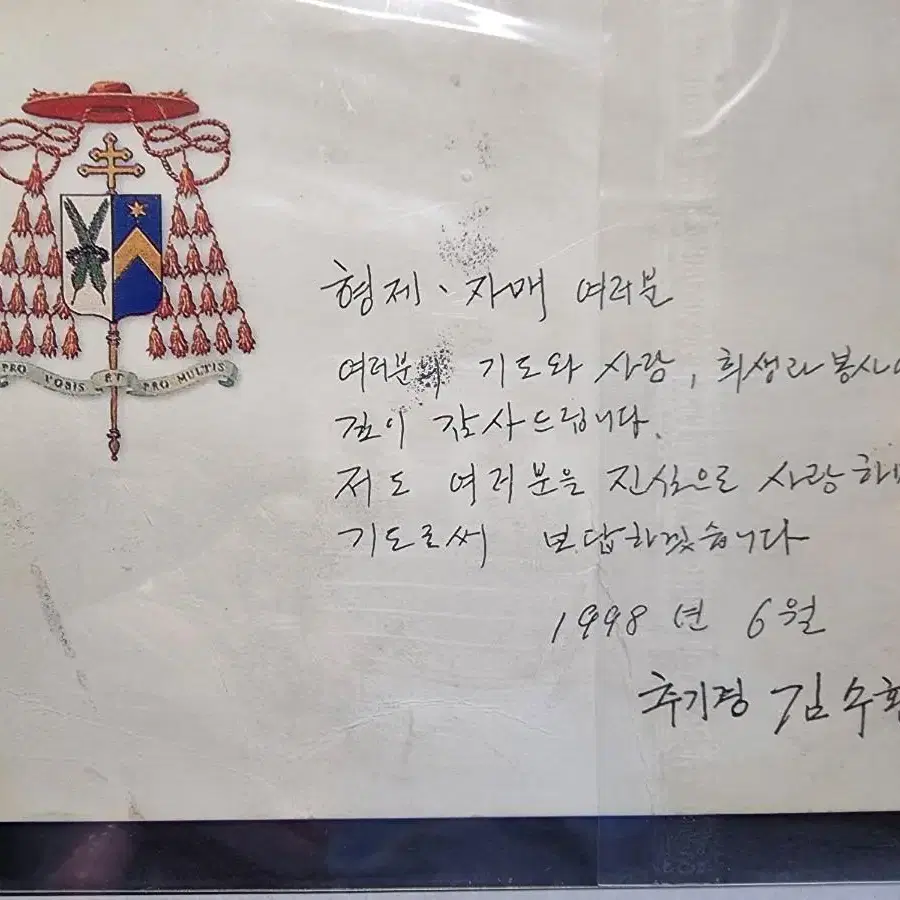 PRO VOBIS ET PRO MULTIS
형제、자매 여러분
여러분의 기도와 사랑, 희생과 봉사에
깊이 감사드립니다.
저도 여러분을 진심으로 사랑하며
기도로써 보답하겠습니다
1998년 6월
추기경 김수환